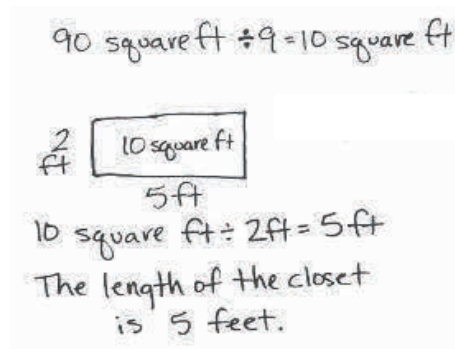 90 square ft ÷ 9 = 10 square ft
2
ft
10 square ft
5 ft
10 square ft ÷ 2 ft = 5 ft
The length of the closet
is 5 feet.